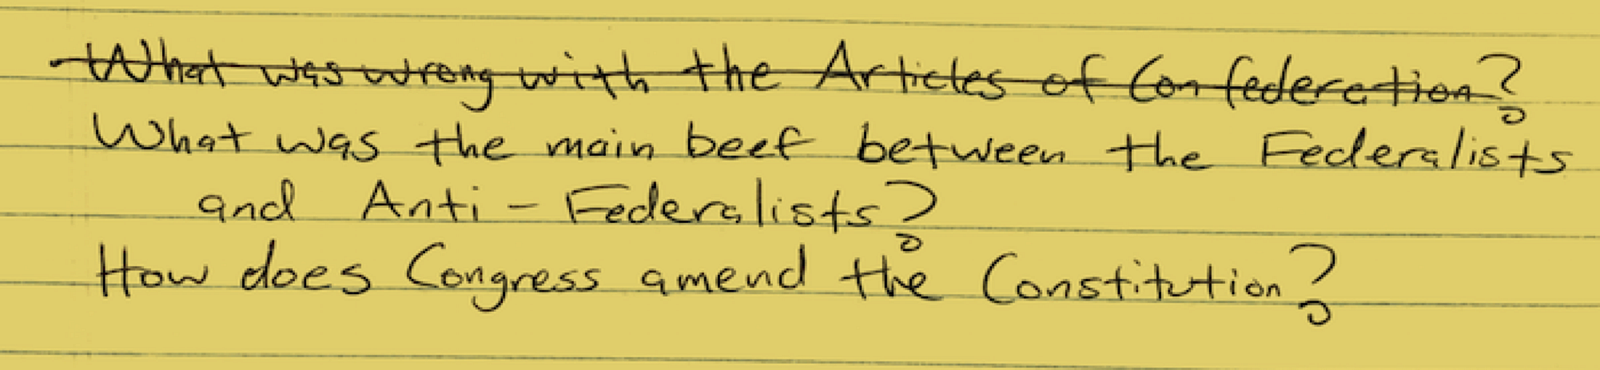 What was wrong with the Articles of Confederation?
What was the main beef between the Federalists
and Anti-Federalists?
How does Congress amend the Constitution?